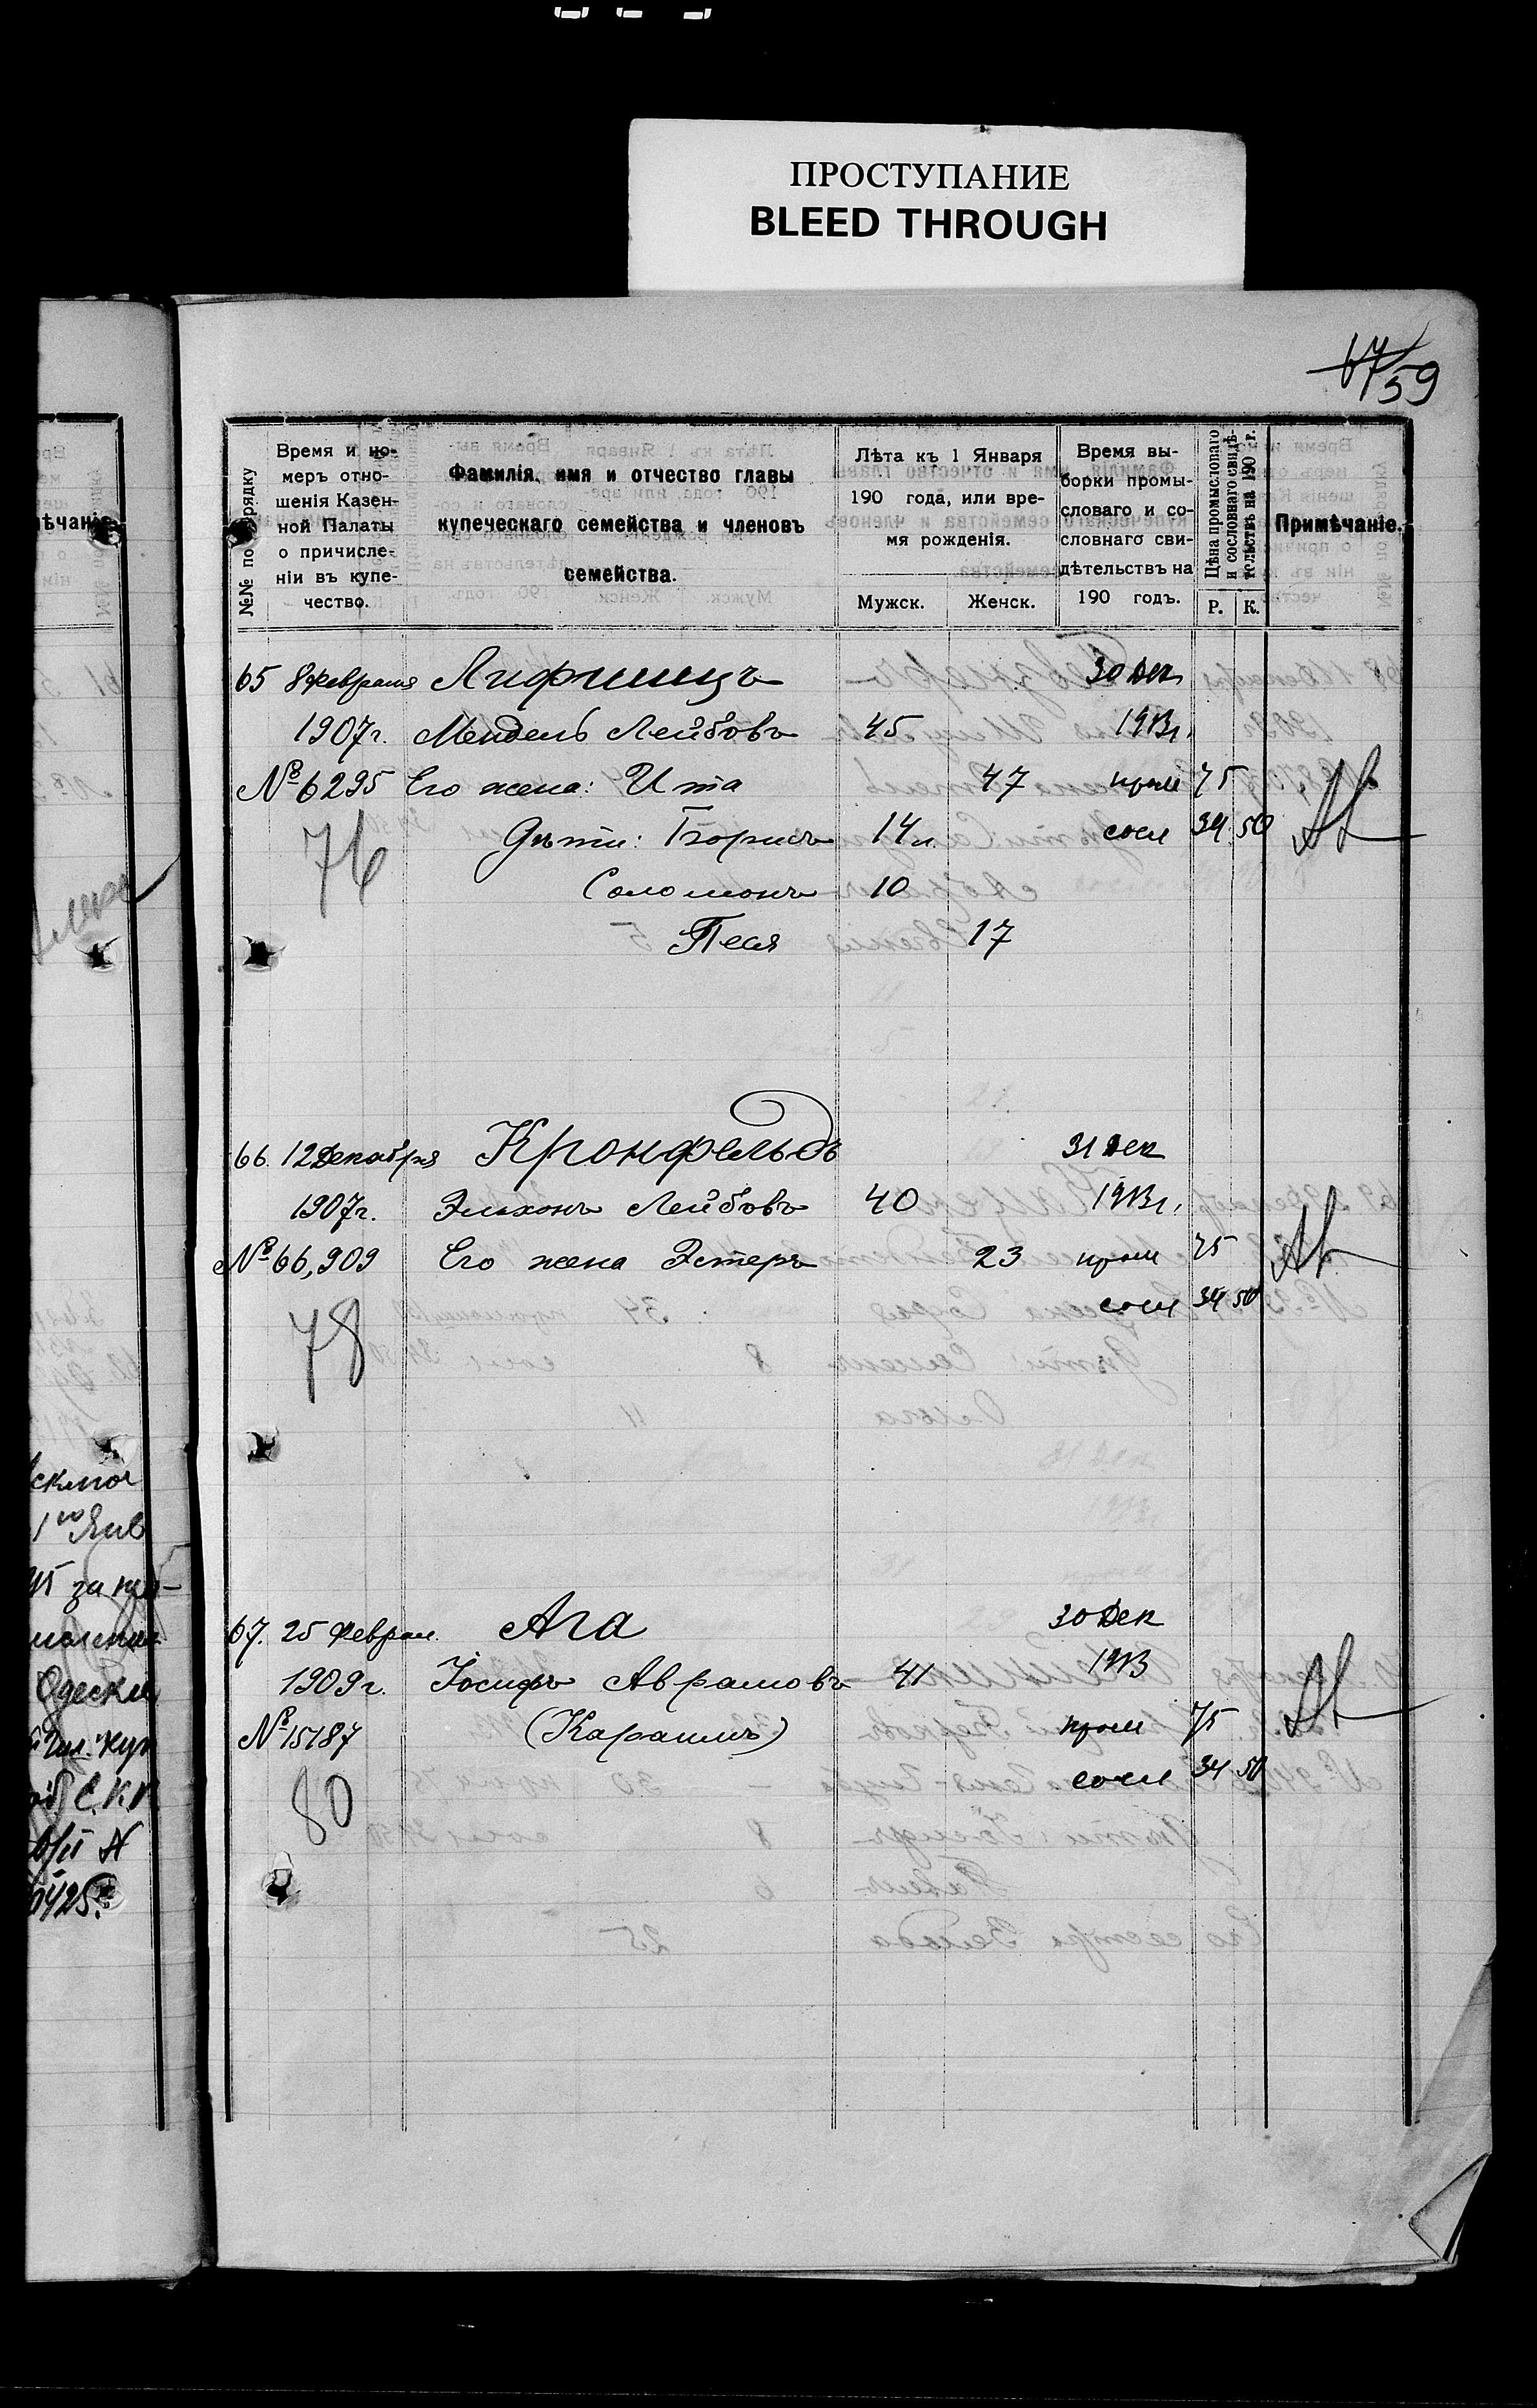 ПРОСТУПАНИЕ
BLEED THROUGH
67/59
№№ по порядку
Время и но-
меръ отно-
шенія Казен-
ной Палаты
о причисле-
ніи въ купе-
чество.
Фамилія, имя и отчество главы
купеческаго семейства и членовъ
семейства.
Лѣта къ 1 Января
190 года, или вре-
мя рожденія.
Мужск. Женск.
Время вы-
борки промы-
словаго и со-
словнаго сви-
дѣтельствъ на
190 годъ.
Цѣна промысловаго
и сословнаго свидѣ-
тельствъ на 190 г.
Р. К.
Примѣчаніе.
65 8 Февраля Лифшицъ 30 Дек
1907г. Мендель Лейбовъ 45 1913г.
№ 6295 Его жена: Ита 47 пром 75
76 Дѣти: Борисъ 14 л. сосл 34 50
Соломонъ 10
Песя 17
66. 12 Декабря Кронфельдъ 31 Дек
1907г. Эльхонъ Лейбовъ 40 1913г.
№ 66,909 Его жена Эстеръ 23 пром 75
сосл 34 50
78
67. 25 Феврал. Ага 30 Дек
1909г. Іосифъ Аврамовъ 41 1913
№ 15187 (Караимъ) пром 75
80 сосл 34 50
ѣчаніе
1го Янв